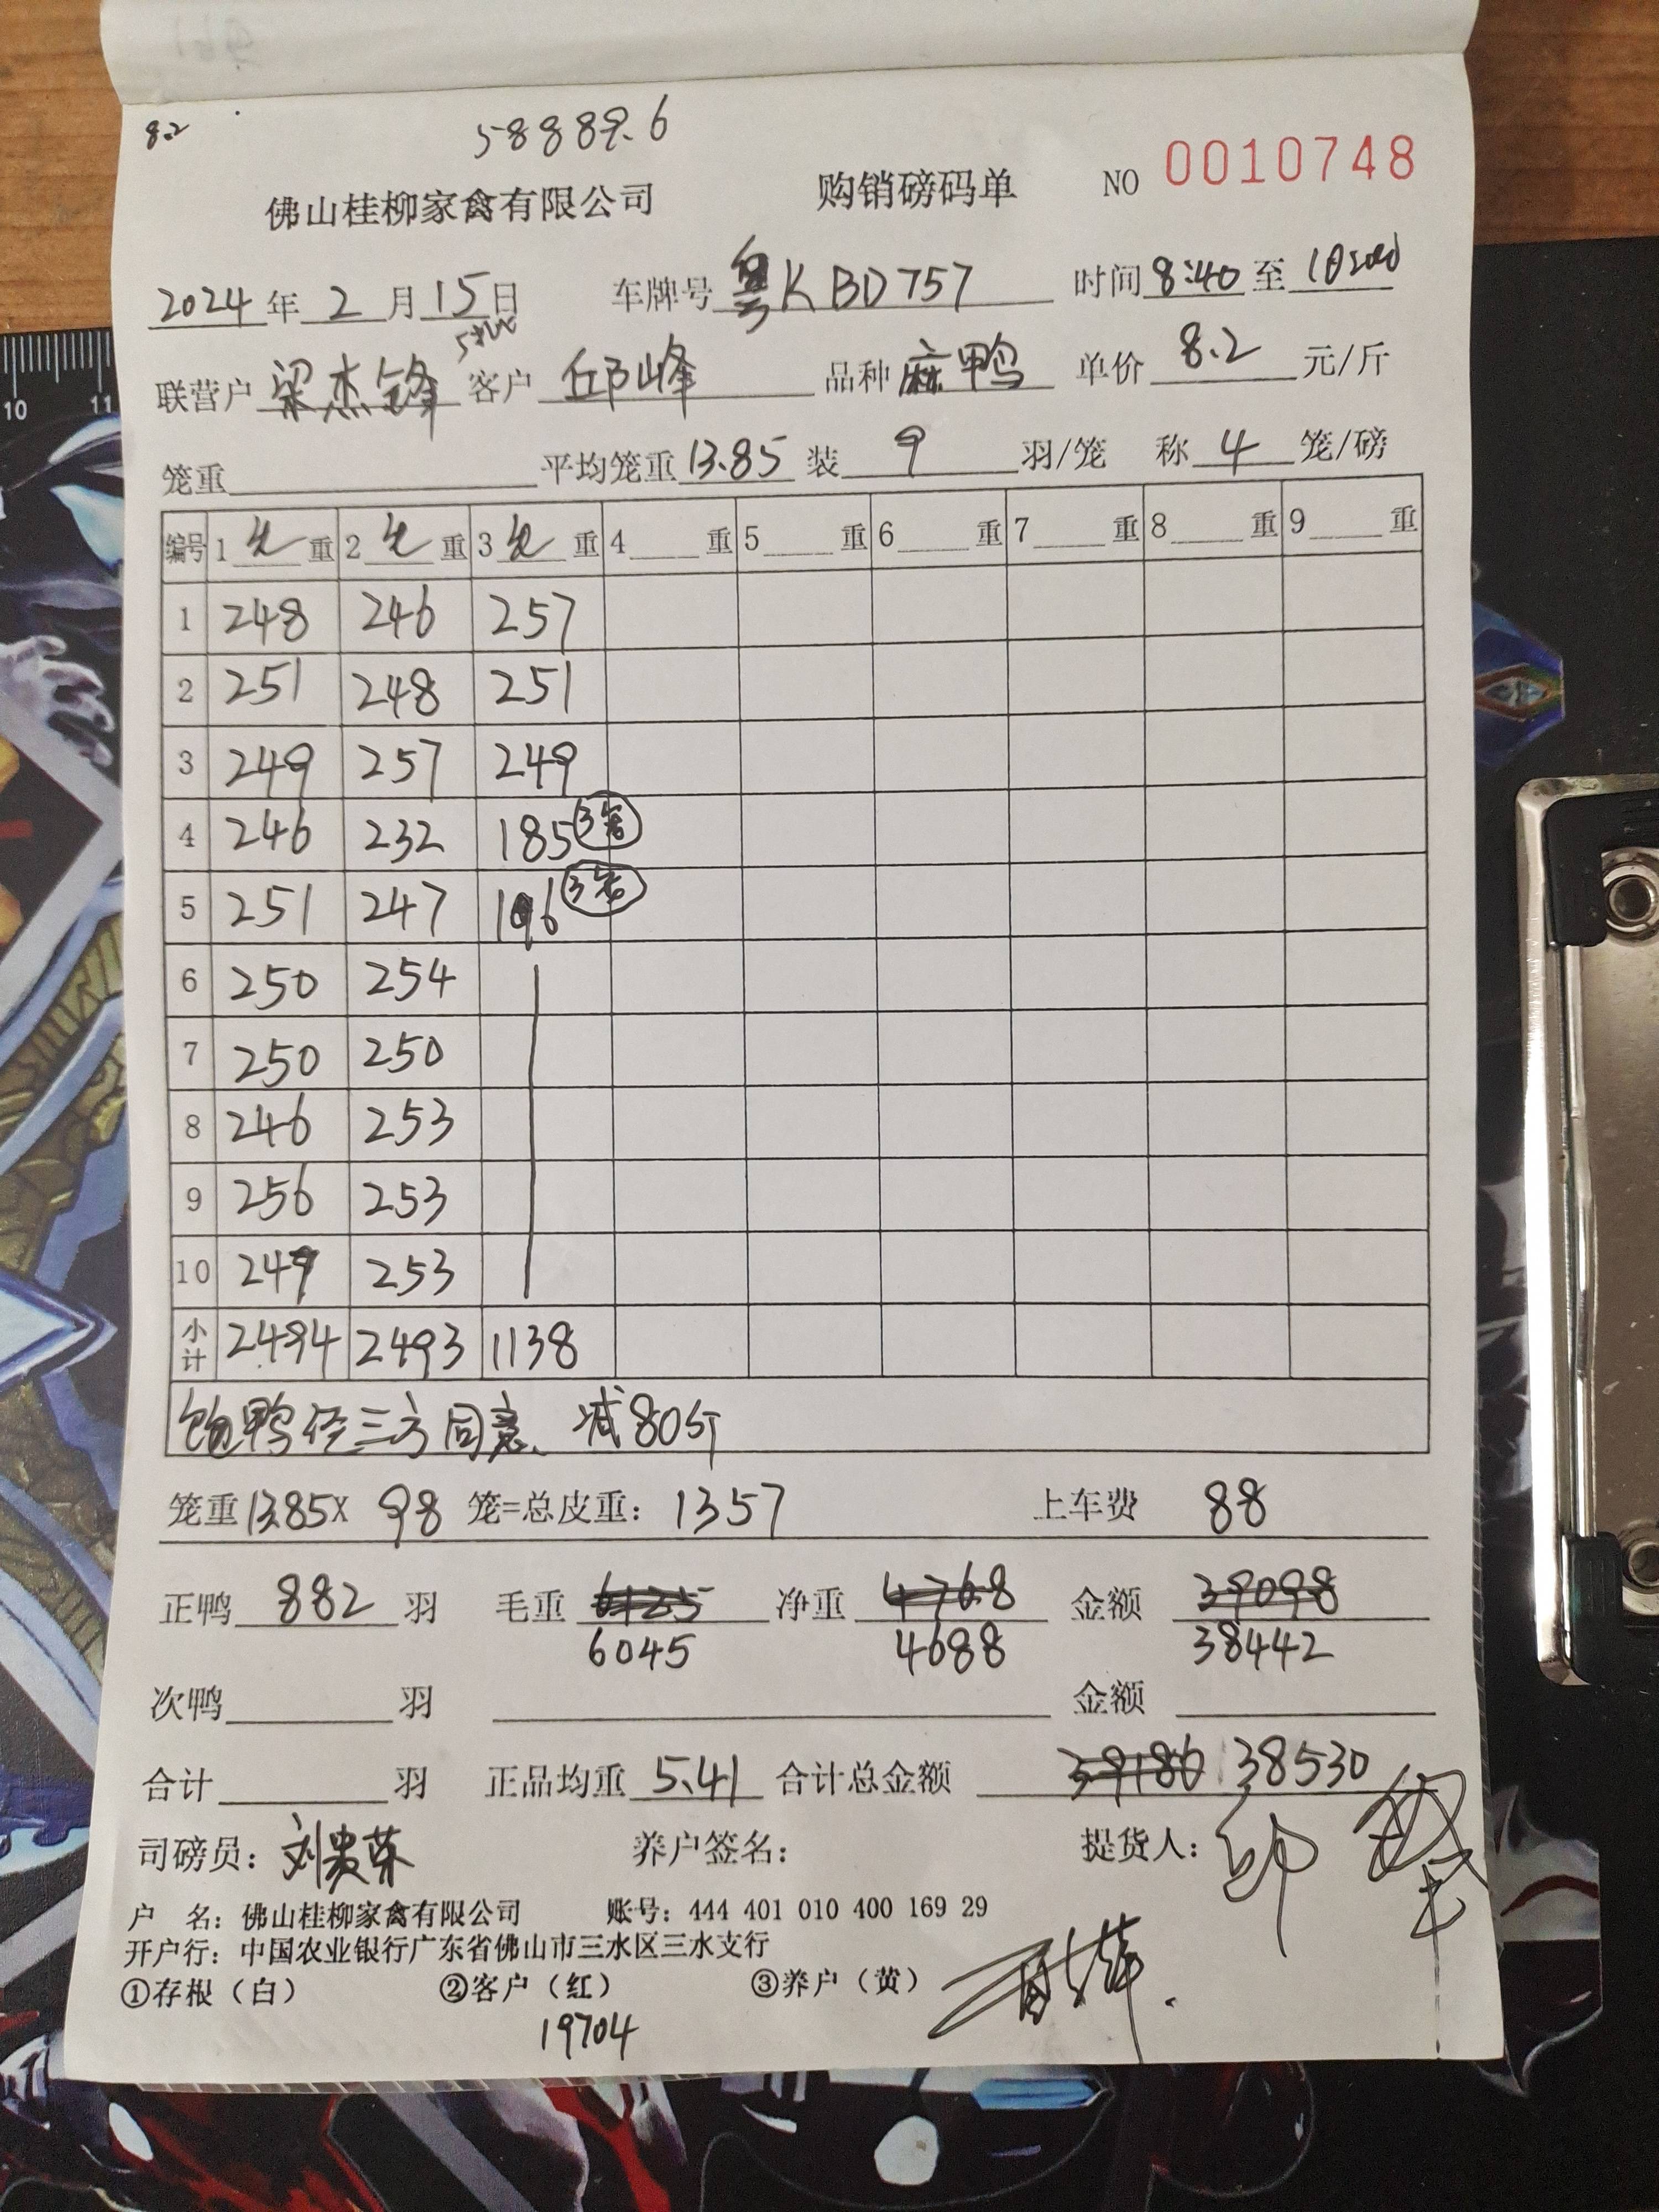 8.2 58889.6
佛山桂柳家禽有限公司 购销磅码单 NO 0010748
2024年2月15日 车牌号 粤KBD757 时间 8:40 至
联营户 梁杰锋 客户 邱峰 品种 麻鸭 单价 8.2 元/斤
笼重 平均笼重 13.85 装 9 羽/笼 称 4 笼/磅
编号 1 重 2 重 3 重 4 重 5 重 6 重 7 重 8 重 9 重
1 248 246 257
2 251 248 251
3 249 257 249
4 246 232 185
5 251 247 196
6 250 254
7 250 250
8 246 253
9 256 253
10 249 253
小计 2494 2493 1138
饱鸭经三方同意、减80斤
笼重 13.85X 98 笼=总皮重: 1357 上车费 88
正鸭 882 羽 毛重 6125 净重 4768 金额 39098
6045 4688 38442
次鸭 羽 金额
合计 羽 正品均重 5.41 合计总金额 39186 38530
司磅员: 刘贵荣 养户签名: 提货人:
户 名: 佛山桂柳家禽有限公司 账号: 444 401 010 400 169 29
开户行: 中国农业银行广东省佛山市三水区三水支行
①存根（白） ②客户（红） ③养户（黄）
19704